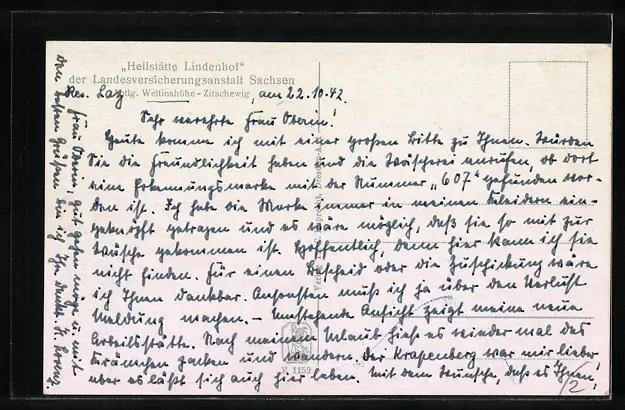 „Heilstätte Lindenhof"
der Landesversicherungsanstalt Sachsen
Res. Laz Abtlg. Wettinshöhe - Zitschewig, am 22.10.42.
Sehr verehrte Frau Oberin!
Heute komme ich mit einer großen Bitte zu Ihnen. Würden
Sie die Freundlichkeit haben und die Wäscherei anrufen, ob dort
eine Erkennungsmarke mit der Nummer „607" gefunden wor-
den ist. Ich habe die Marke immer in meinen Kleidern ein-
geknöpft getragen und es wäre möglich, daß sie so mit zur
Wäsche gekommen ist. Hoffentlich, denn hier kann ich sie
nicht finden. Für einen Bescheid oder die Zuschickung wäre
ich Ihnen dankbar. Ansonsten muß ich ja über den Verlust
Meldung machen. – Umstehende Ansicht zeigt meine neue
Arbeitsstätte. Nach meinem Urlaub hieß es wieder mal das
Kränzchen packen und wandern. Der Krapenberg war mir lieber,
aber es läßt sich auch hier leben. Mit dem Wunsche, daß es Ihnen,
Frau Oberin, gut gehen möge u. mit
den besten Grüßen bin ich Ihr
F 1159
/2